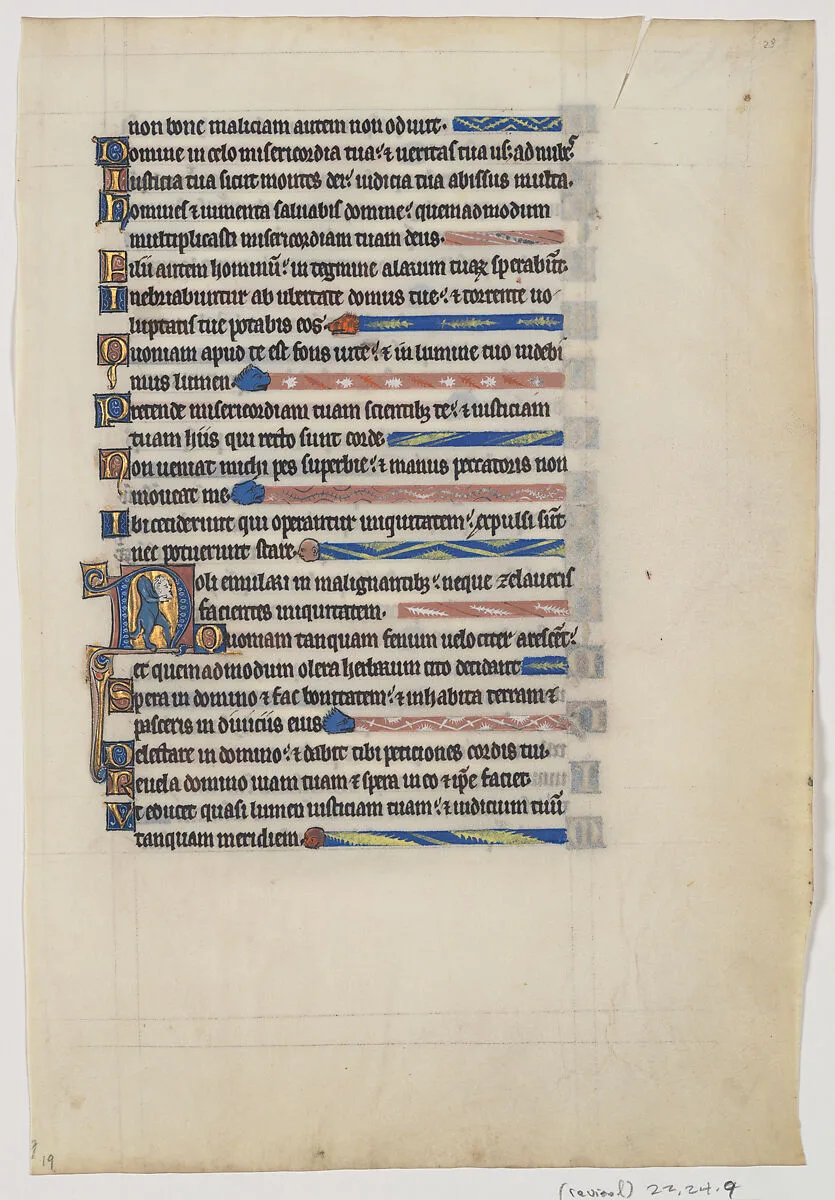 28
non bone maliciam autem non odiuit.
Domine in celo misericordia tua: & ueritas tua usq; ad nubes
Iusticia tua sicut montes dei: iudicia tua abissus multa.
homines & iumenta saluabis domine: quemadmodum
multiplicasti misericordiam tuam deus.
Filii autem hominū: in tegmine alarum tuaꝝ sperabūt.
Inebriabuntur ab ubertate domus tue: & torrente uo
luptatis tue potabis eos
Quoniam apud te est fons uite: & in lumine tuo uidebi
mus lumen
Pretende misericordiam tuam scientibꝫ te: & iusticiam
tuam hiis qui recto sunt corde
Non ueniat michi pes superbie: & manus peccatoris non
moueat me
Ibi ceciderunt qui operantur iniquitatem: expulsi sūt
nec potuerunt stare
Noli emulari in malignantibꝫ: neque zelaueris
facientes iniquitatem.
Quoniam tanquam fenum uelociter arescēt:
et quemadmodum olera herbarum cito decidunt
Spera in domino & fac bonitatem: & inhabita terram &
pasceris in diuiciis eius
Delectare in domino: & dabit tibi peticiones cordis tui.
Reuela domino uiam tuam & spera in eo & ip̄e faciet.
Vt educet quasi lumen iusticiam tuam: & iudicium tuū
tanquam meridiem
19
22.24.9